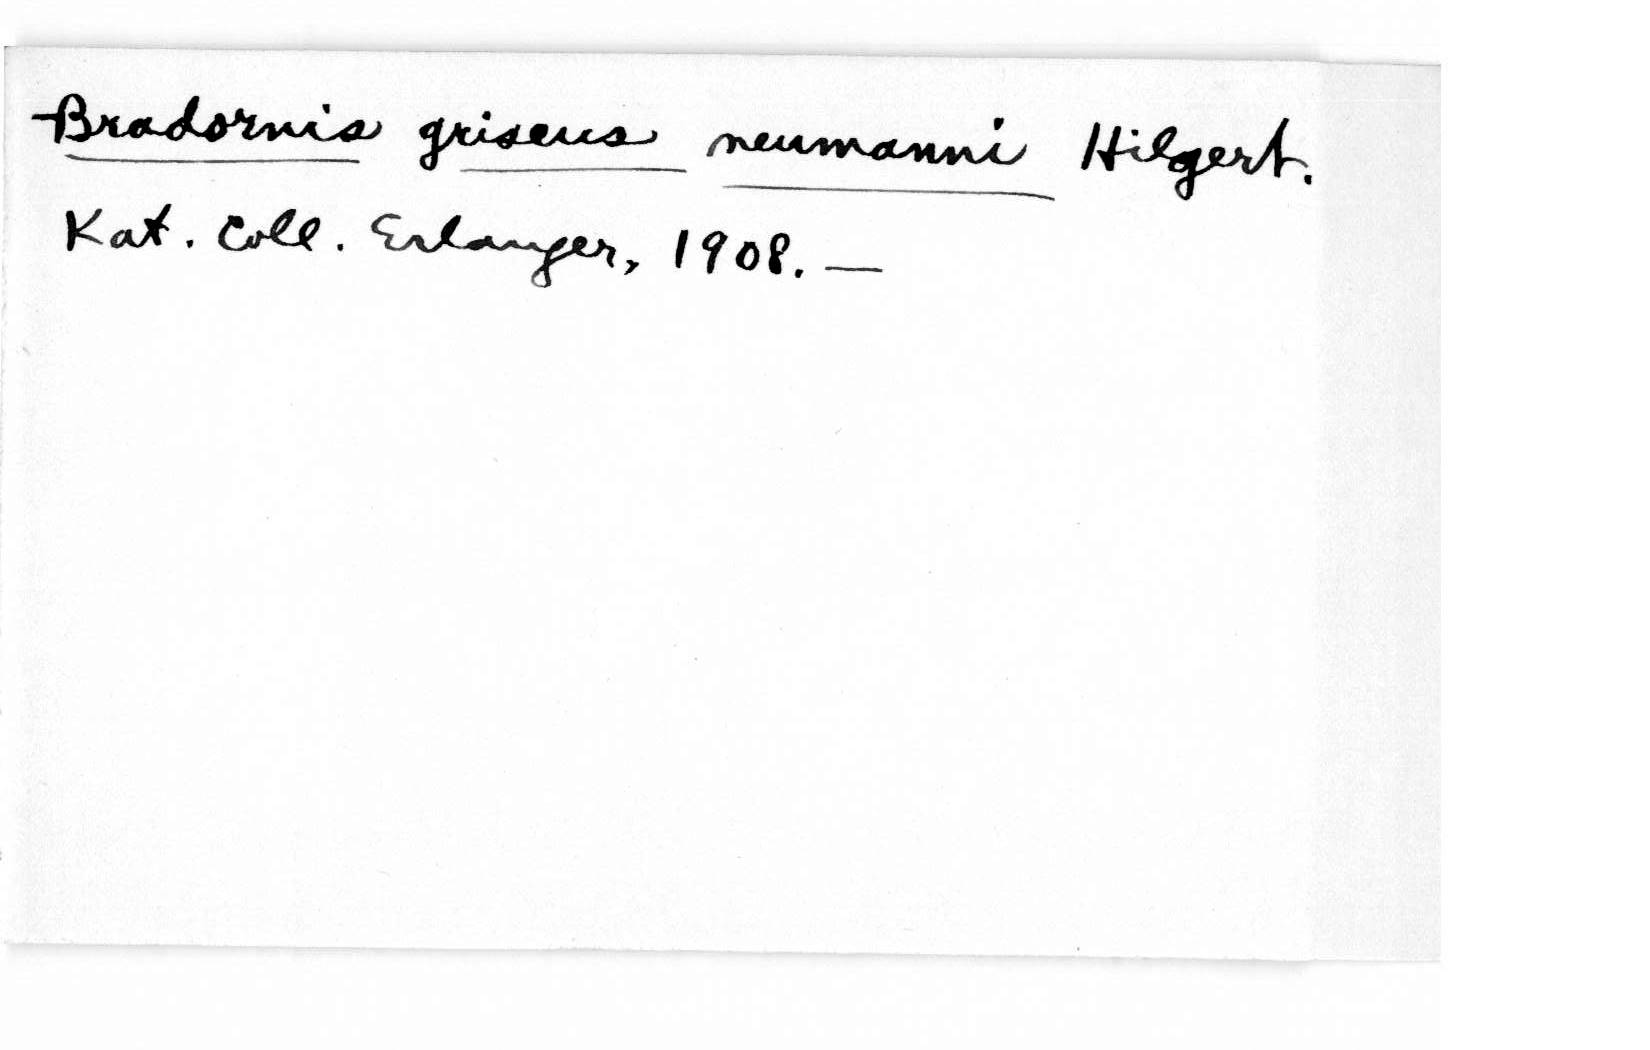 Bradornis griseus neumanni Hilgert.
Kat. Coll. Erlanger, 1908. —